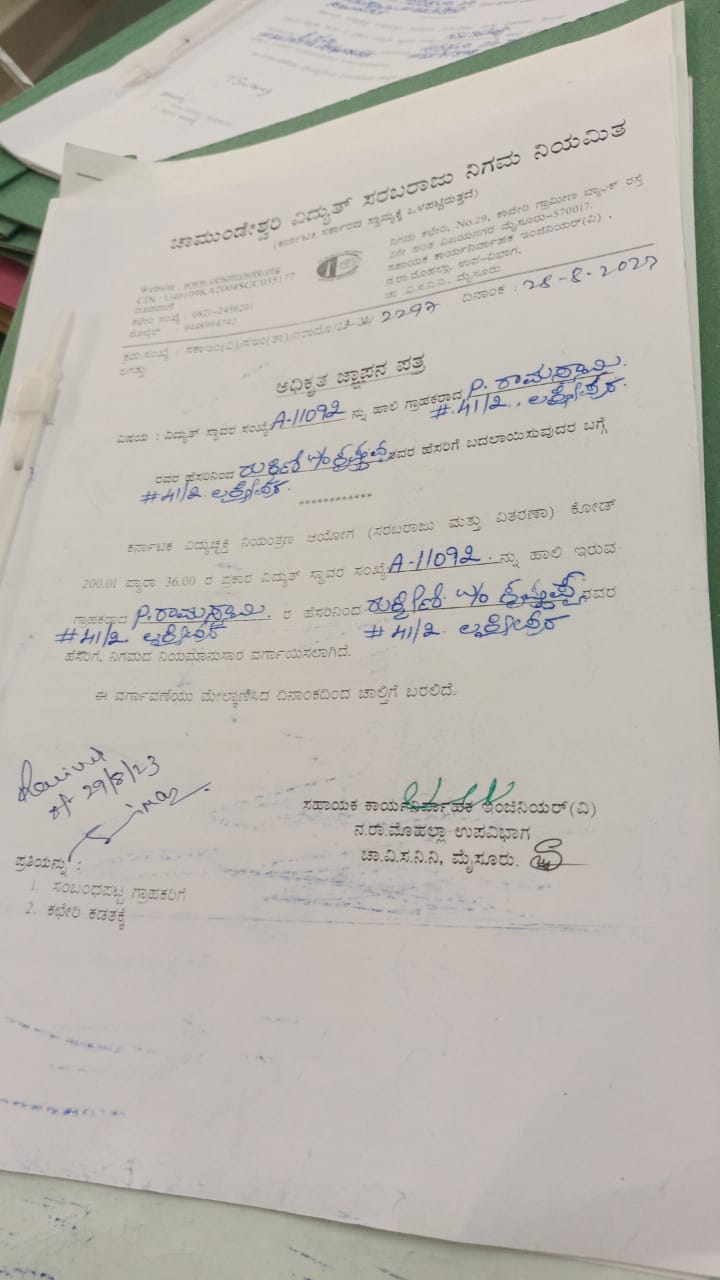 ಚಾಮುಂಡೇಶ್ವರಿ ವಿದ್ಯುತ್ ಸರಬರಾಜು ನಿಗಮ ನಿಯಮಿತ
(ಕರ್ನಾಟಕ ಸರ್ಕಾರದ ಸ್ವಾಮ್ಯಕ್ಕೆ ಒಳಪಟ್ಟಿರುತ್ತದೆ)
Website : www.cescmysore.org
CIN : U40109KA2004SGC035177
ದೂರವಾಣಿ
ಕಛೇರಿ ಸಂಖ್ಯೆ : 0821-2456201
ಮೊಬೈಲ್ : 9448994742
ನಿಗಮ ಕಛೇರಿ, No.29, ಕಾವೇರಿ ಗ್ರಾಮೀಣ ಬ್ಯಾಂಕ್ ರಸ್ತೆ
2ನೇ ಹಂತ ವಿಜಯನಗರ ಮೈಸೂರು-570017.
ಸಹಾಯಕ ಕಾರ್ಯನಿರ್ವಾಹಕ ಇಂಜಿನಿಯರ್(ವಿ) ,
ನ.ರಾ.ಮೊಹಲ್ಲಾ, ಉಪ-ವಿಭಾಗ,
ಚಾ.ವಿ.ಸ.ನಿ.ನಿ., ಮೈಸೂರು
ಕ್ರಮ ಸಂಖ್ಯೆ : 2297 ದಿನಾಂಕ : 28-8-2023
ಲಗತ್ತು:
ಅಧಿಕೃತ ಜ್ಞಾಪನ ಪತ್ರ
ವಿಷಯ : ವಿದ್ಯುತ್ ಸ್ಥಾವರ ಸಂಖ್ಯೆ A-11092 ನ್ನು ಹಾಲಿ ಗ್ರಾಹಕರಾದ P. ರಾಮಸ್ವಾಮಿ.
#.41/2.,
ರವರ ಹೆಸರಿನಿಂದ ರುಕ್ಮಿಣಿ w/o ಕೃಷ್ಣಪ್ಪ ರವರ ಹೆಸರಿಗೆ ಬದಲಾಯಿಸುವುದರ ಬಗ್ಗೆ
#41/2.
************
ಕರ್ನಾಟಕ ವಿದ್ಯುಚ್ಛಕ್ತಿ ನಿಯಂತ್ರಣ ಆಯೋಗ (ಸರಬರಾಜು ಮತ್ತು ವಿತರಣಾ) ಕೋಡ್
200.01 ಪ್ಯಾರಾ 36.00 ರ ಪ್ರಕಾರ ವಿದ್ಯುತ್ ಸ್ಥಾವರ ಸಂಖ್ಯೆ A-11092. ನ್ನು ಹಾಲಿ ಇರುವ
ಗ್ರಾಹಕರಾದ P. ರಾಮಸ್ವಾಮಿ. ರ ಹೆಸರಿನಿಂದ ರುಕ್ಮಿಣಿ w/o ಕೃಷ್ಣಪ್ಪ ರವರ
#41/2. #41/2.
ಹೆಸರಿಗೆ, ನಿಗಮದ ನಿಯಮಾನುಸಾರ ವರ್ಗಾಯಿಸಲಾಗಿದೆ.
ಈ ವರ್ಗಾವಣೆಯು ಮೇಲ್ಕಾಣಿಸಿದ ದಿನಾಂಕದಿಂದ ಚಾಲ್ತಿಗೆ ಬರಲಿದೆ.
29/8/23
ಸಹಾಯಕ ಕಾರ್ಯನಿರ್ವಾಹಕ ಇಂಜಿನಿಯರ್(ವಿ)
ನ.ರಾ.ಮೊಹಲ್ಲಾ ಉಪವಿಭಾಗ
ಚಾ.ವಿ.ಸ.ನಿ.ನಿ, ಮೈಸೂರು.
ಪ್ರತಿಯನ್ನು :
1. ಸಂಬಂಧಪಟ್ಟ ಗ್ರಾಹಕರಿಗೆ
2. ಕಛೇರಿ ಕಡತಕ್ಕೆ